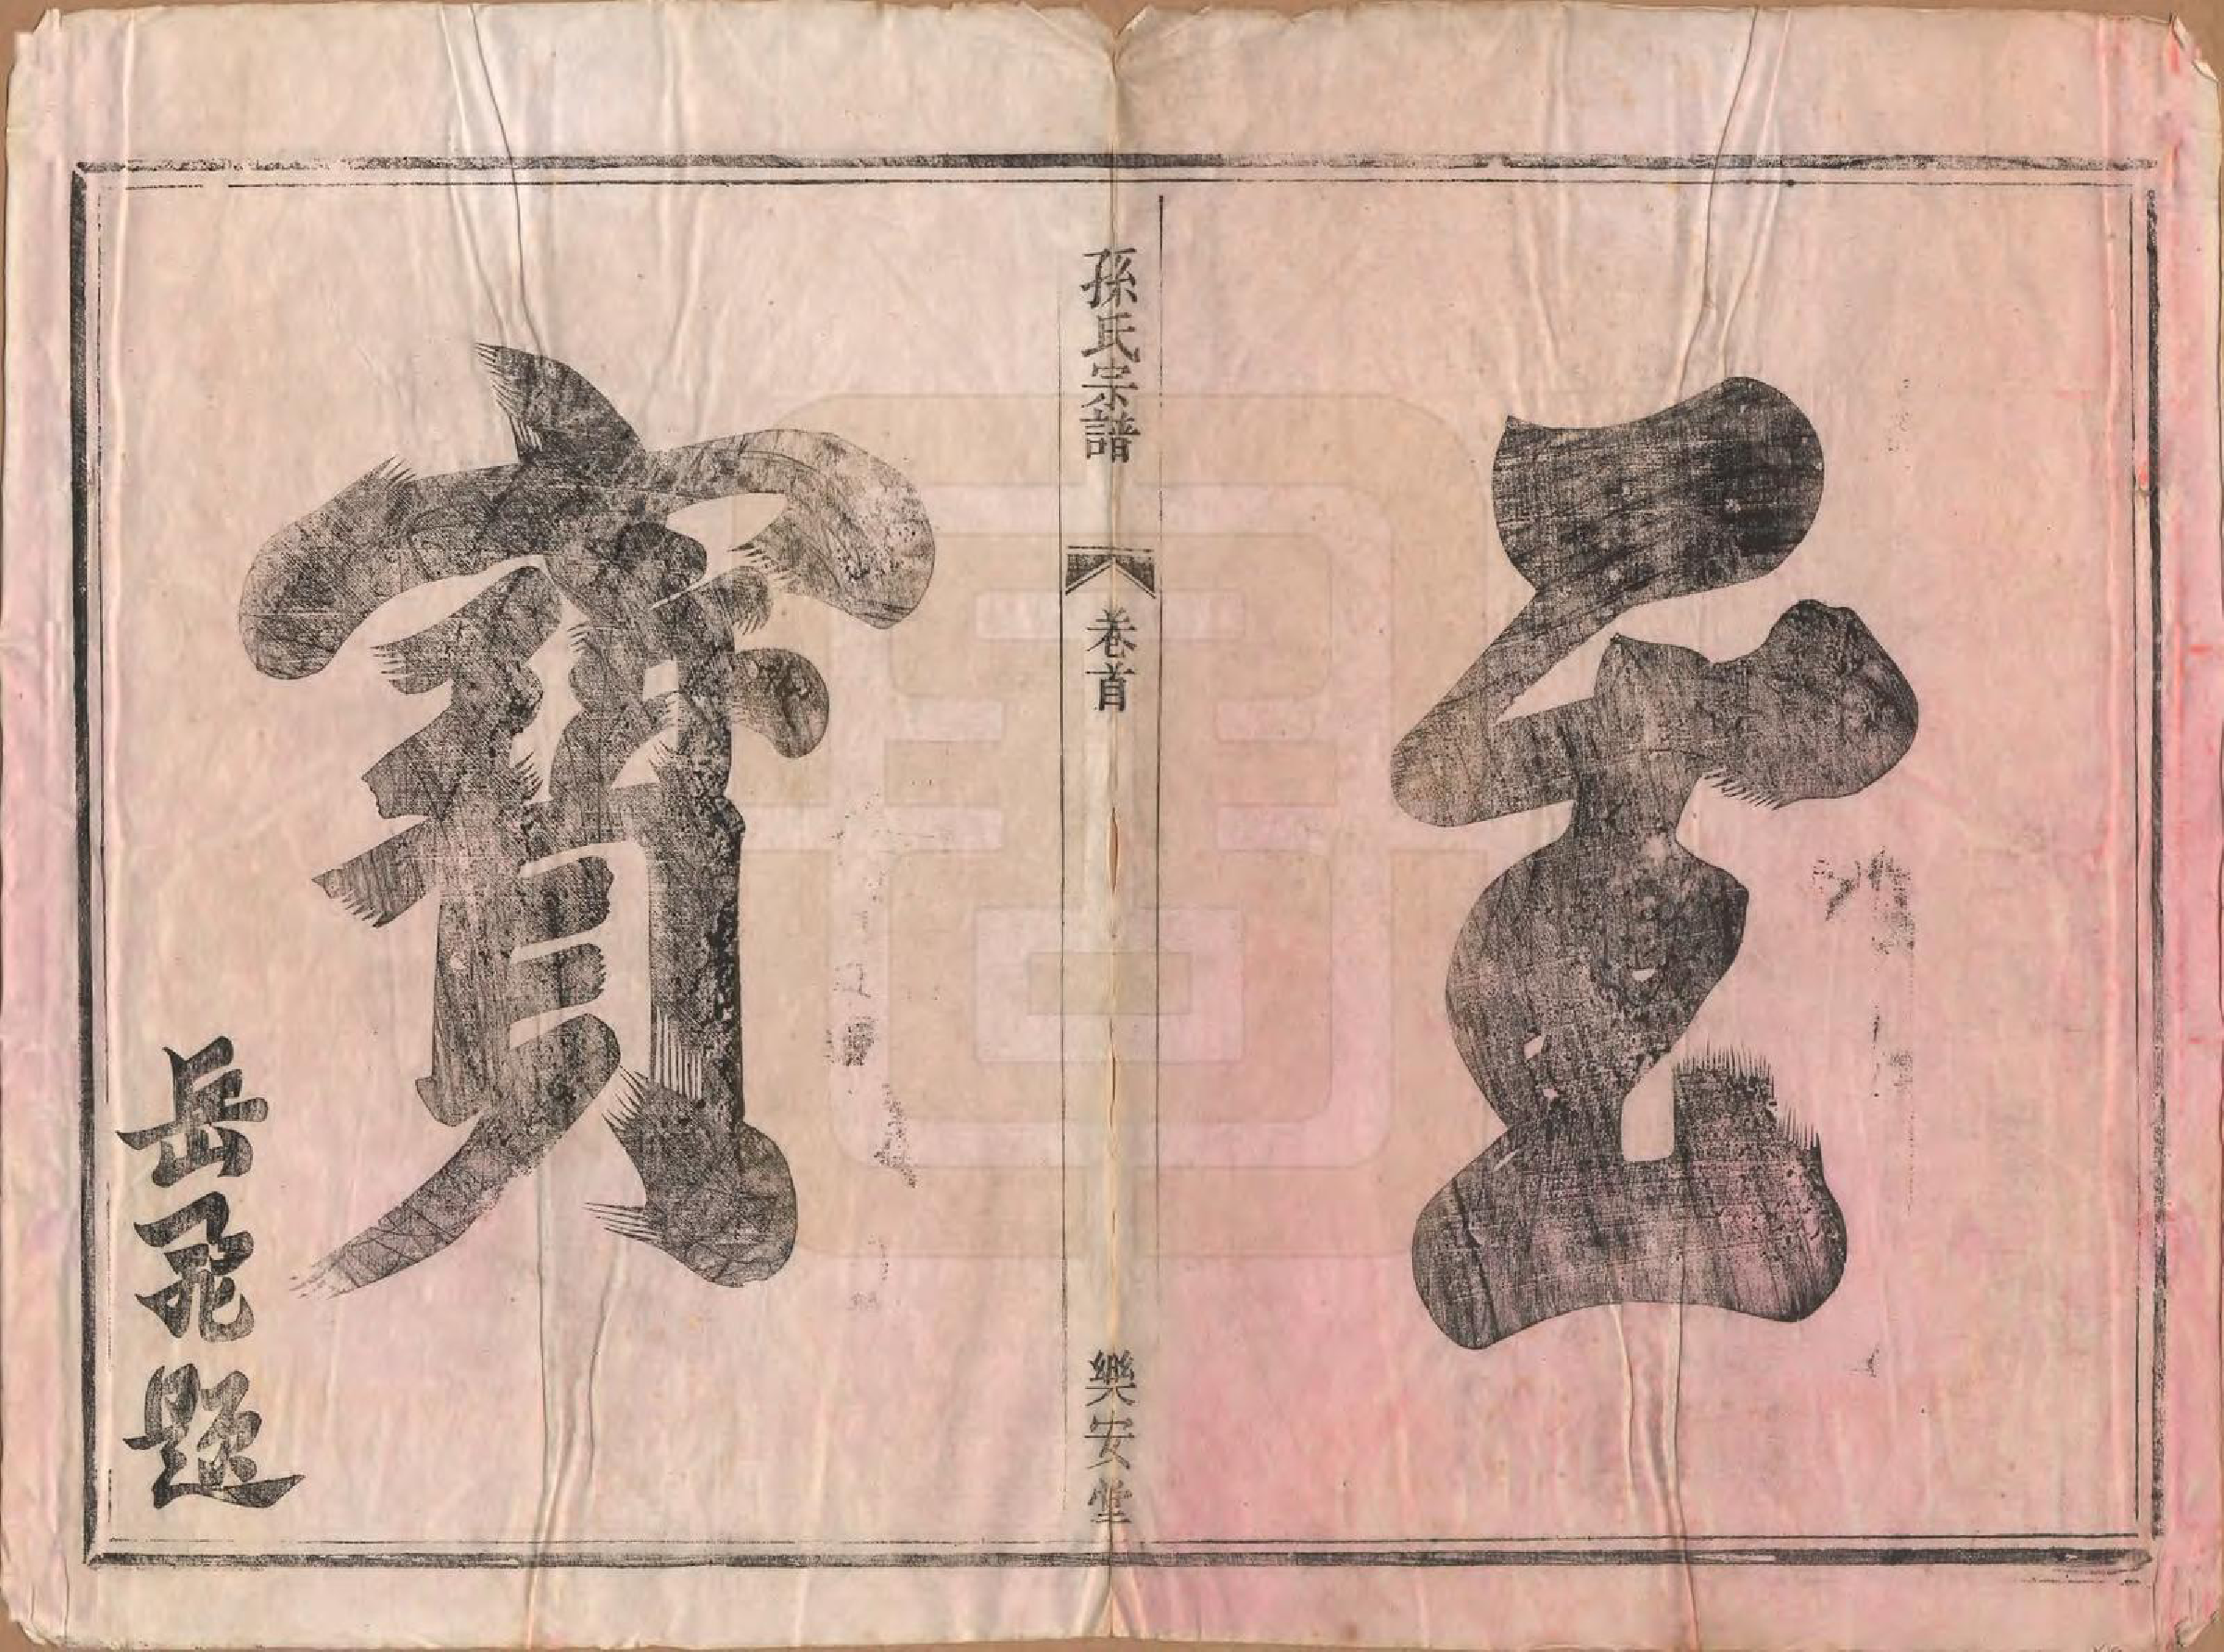 至
孫氏宗譜
卷首
樂安堂
寶
岳飛題